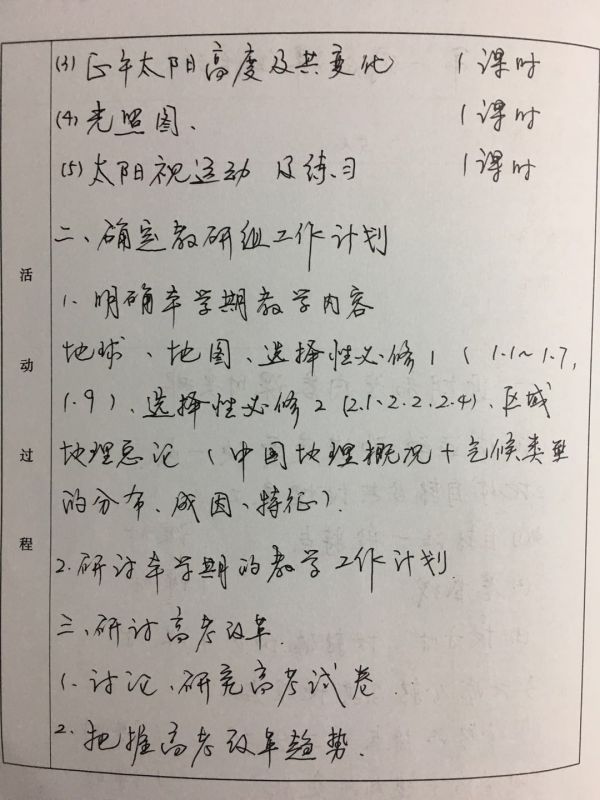 (3) 正午太阳高度及其变化 1课时
(4) 光照图、 1课时
(5) 太阳视运动 及练习 1课时
二、确定教研组工作计划
1、明确本学期教学内容
地球、地图、选择性必修1（1.1~1.7,
1.9）、选择性必修2（2.1、2.2、2.4）、区域
地理总论（中国地理概况+气候类型
的分布、成因、特征）.
2.研讨本学期的教学工作计划
三、研讨高考改革.
1、讨论、研究高考试卷
2、把握高考改革趋势.
活动过程